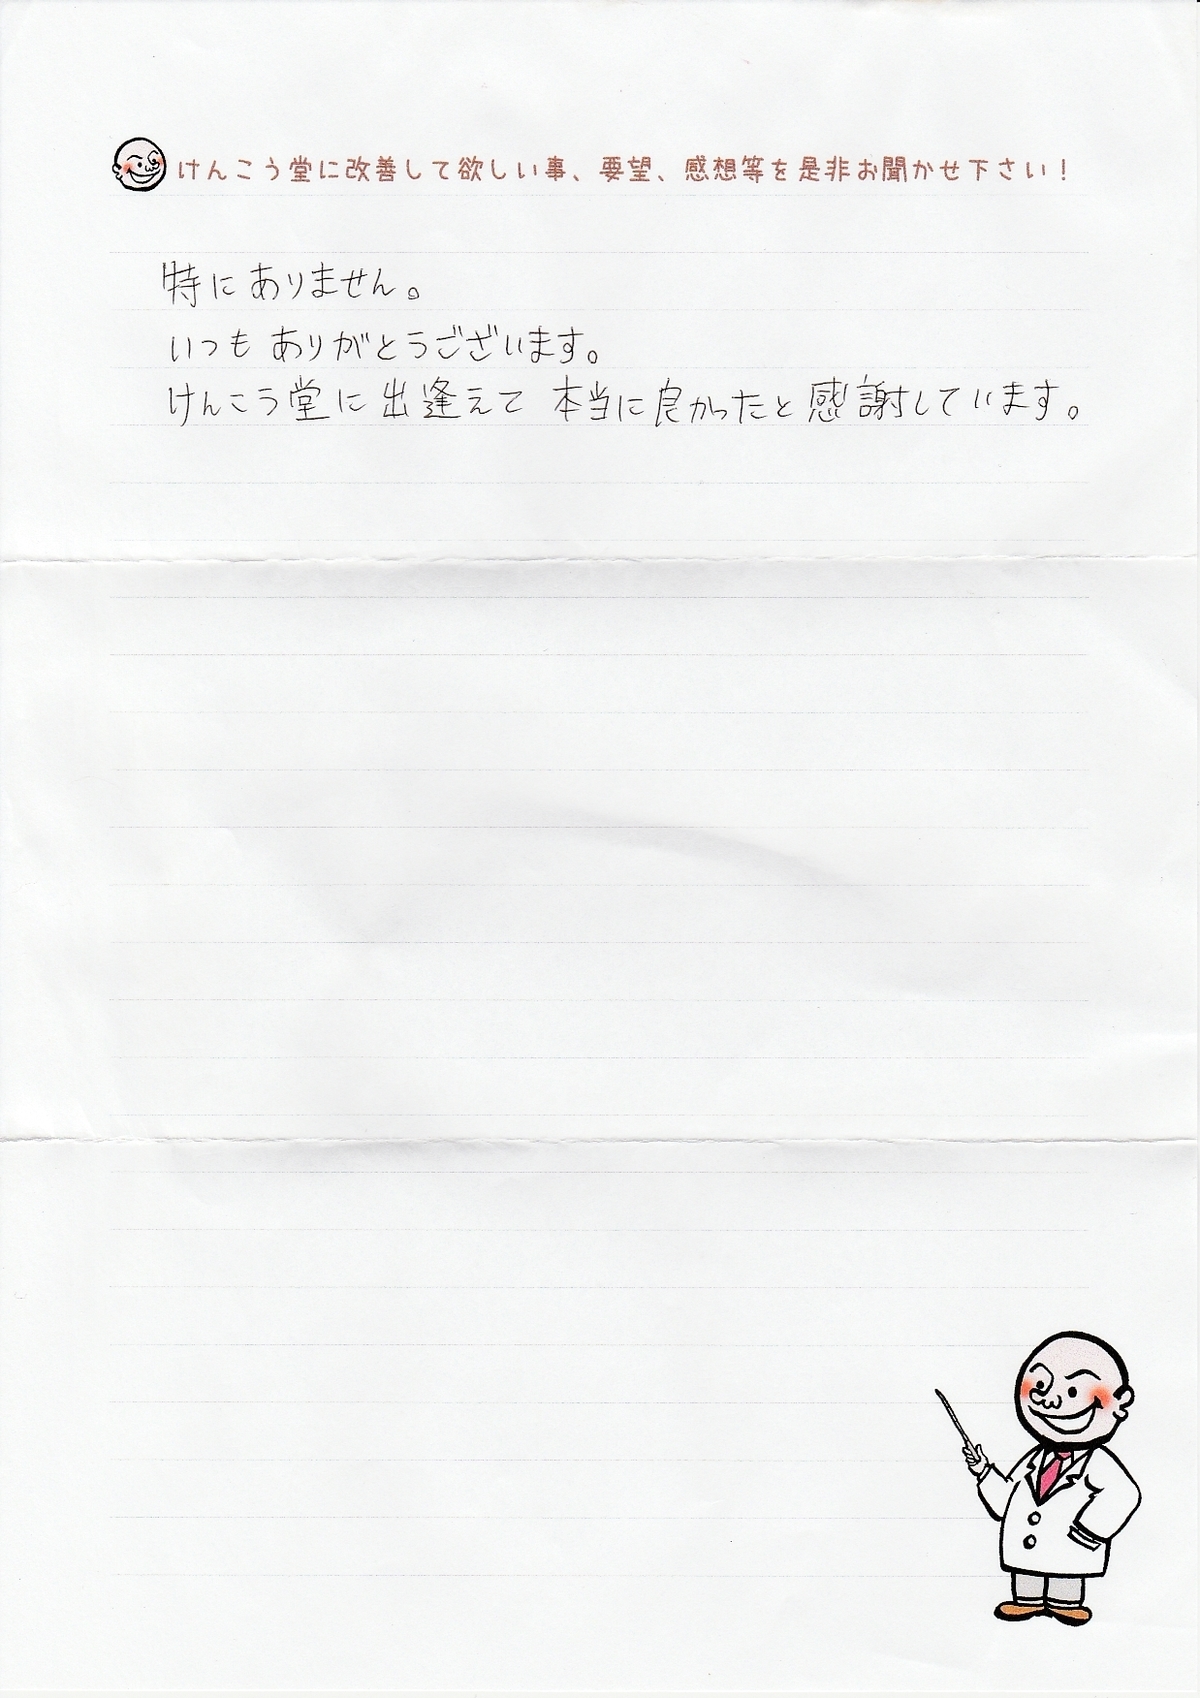 けんこう堂に改善して欲しい事、要望、感想等を是非お聞かせ下さい！
特にありません。
いつもありがとうございます。
けんこう堂に出逢えて本当に良かったと感謝しています。